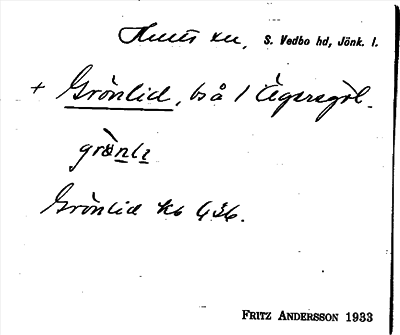 Hults sn, S. Vedbo hd, Jönk. l.
+ Grönlid, bs å / Ägersgöl.
grö̀nlı
Grönlid kb 436.
FRITZ ANDERSSON 1933